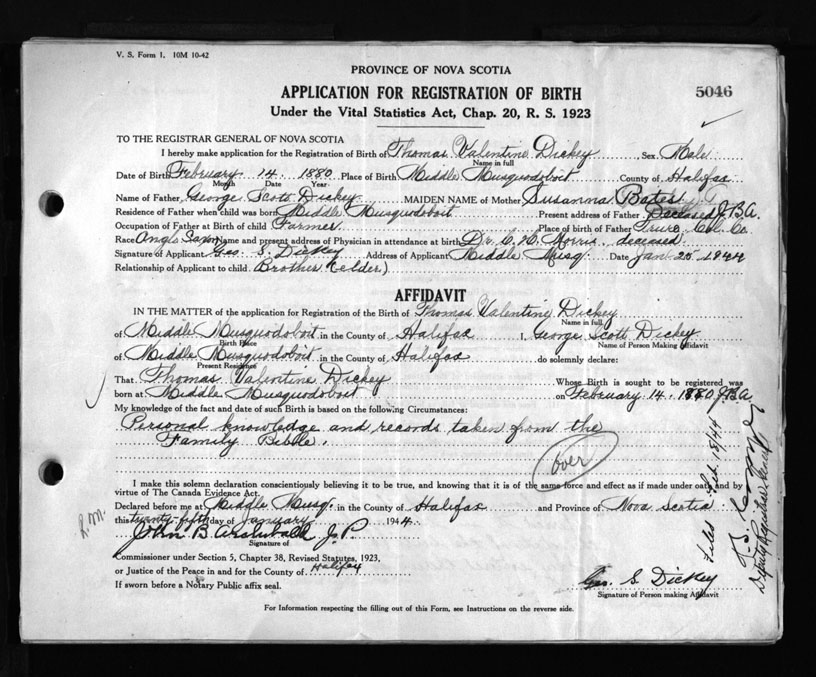 V. S. Form 1. 10M 10-42
PROVINCE OF NOVA SCOTIA
APPLICATION FOR REGISTRATION OF BIRTH
5046
Under the Vital Statistics Act, Chap. 20, R. S. 1923
TO THE REGISTRAR GENERAL OF NOVA SCOTIA
I hereby make application for the Registration of Birth of Thomas Valentine Dickey Sex Male
Name in full
Date of Birth February 14 1880 Place of Birth Middle Musquodoboit County of Halifax
Month Date Year
Name of Father George Scott Dickey MAIDEN NAME of Mother Susanna Bates
Residence of Father when child was born Middle Musquodoboit Present address of Father Deceased J.B.A.
Occupation of Father at Birth of Child Farmer Place of birth of Father Truro, Col. Co.
Race Anglo Saxon Name and present address of Physician in attendance at birth Dr. C. H. Morris, deceased
Signature of Applicant Geo. S. Dickey Address of Applicant Middle Musq. Date Jan 25 1944
Relationship of Applicant to child Brother (elder)
AFFIDAVIT
IN THE MATTER of the application for Registration of the Birth of Thomas Valentine Dickey
Name in full
of Middle Musquodoboit in the County of Halifax I, George Scott Dickey
Birth Place Name of Person Making Affidavit
of Middle Musquodoboit in the County of Halifax do solemnly declare:
Present Residence
That Thomas Valentine Dickey Whose Birth is sought to be registered was
born at Middle Musquodoboit on February 14. 1880 J.B.A.
My knowledge of the fact and date of such Birth is based on the following Circumstances:
Personal knowledge and records taken from the
Family Bible.
over
I make this solemn declaration conscientiously believing it to be true, and knowing that it is of the same force and effect as if made under oath and by
virtue of The Canada Evidence Act.
Declared before me at Middle Musq. in the County of Halifax and Province of Nova Scotia
this twenty fifth day of January 1944.
John B. Archibald J. P.
Signature of
Commissioner under Section 5, Chapter 38, Revised Statutes, 1923,
or Justice of the Peace in and for the County of Halifax
If sworn before a Notary Public affix seal.
Geo. S. Dickey
Signature of Person making Affidavit
For Information respecting the filling out of this Form, see Instructions on the reverse side.
Filed Feb. 18/44
Deputy Registrar General